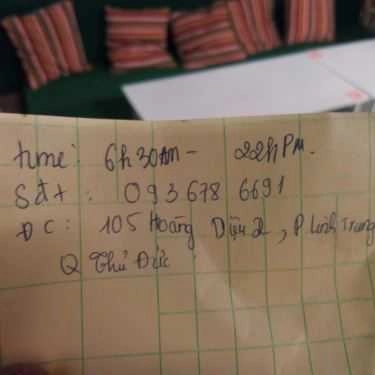 time: 6h30AM - 22hPM.
Sđt: 093 678 6691
ĐC: 105 Hoàng Diệu 2, P Linh Trung
Q Thủ Đức